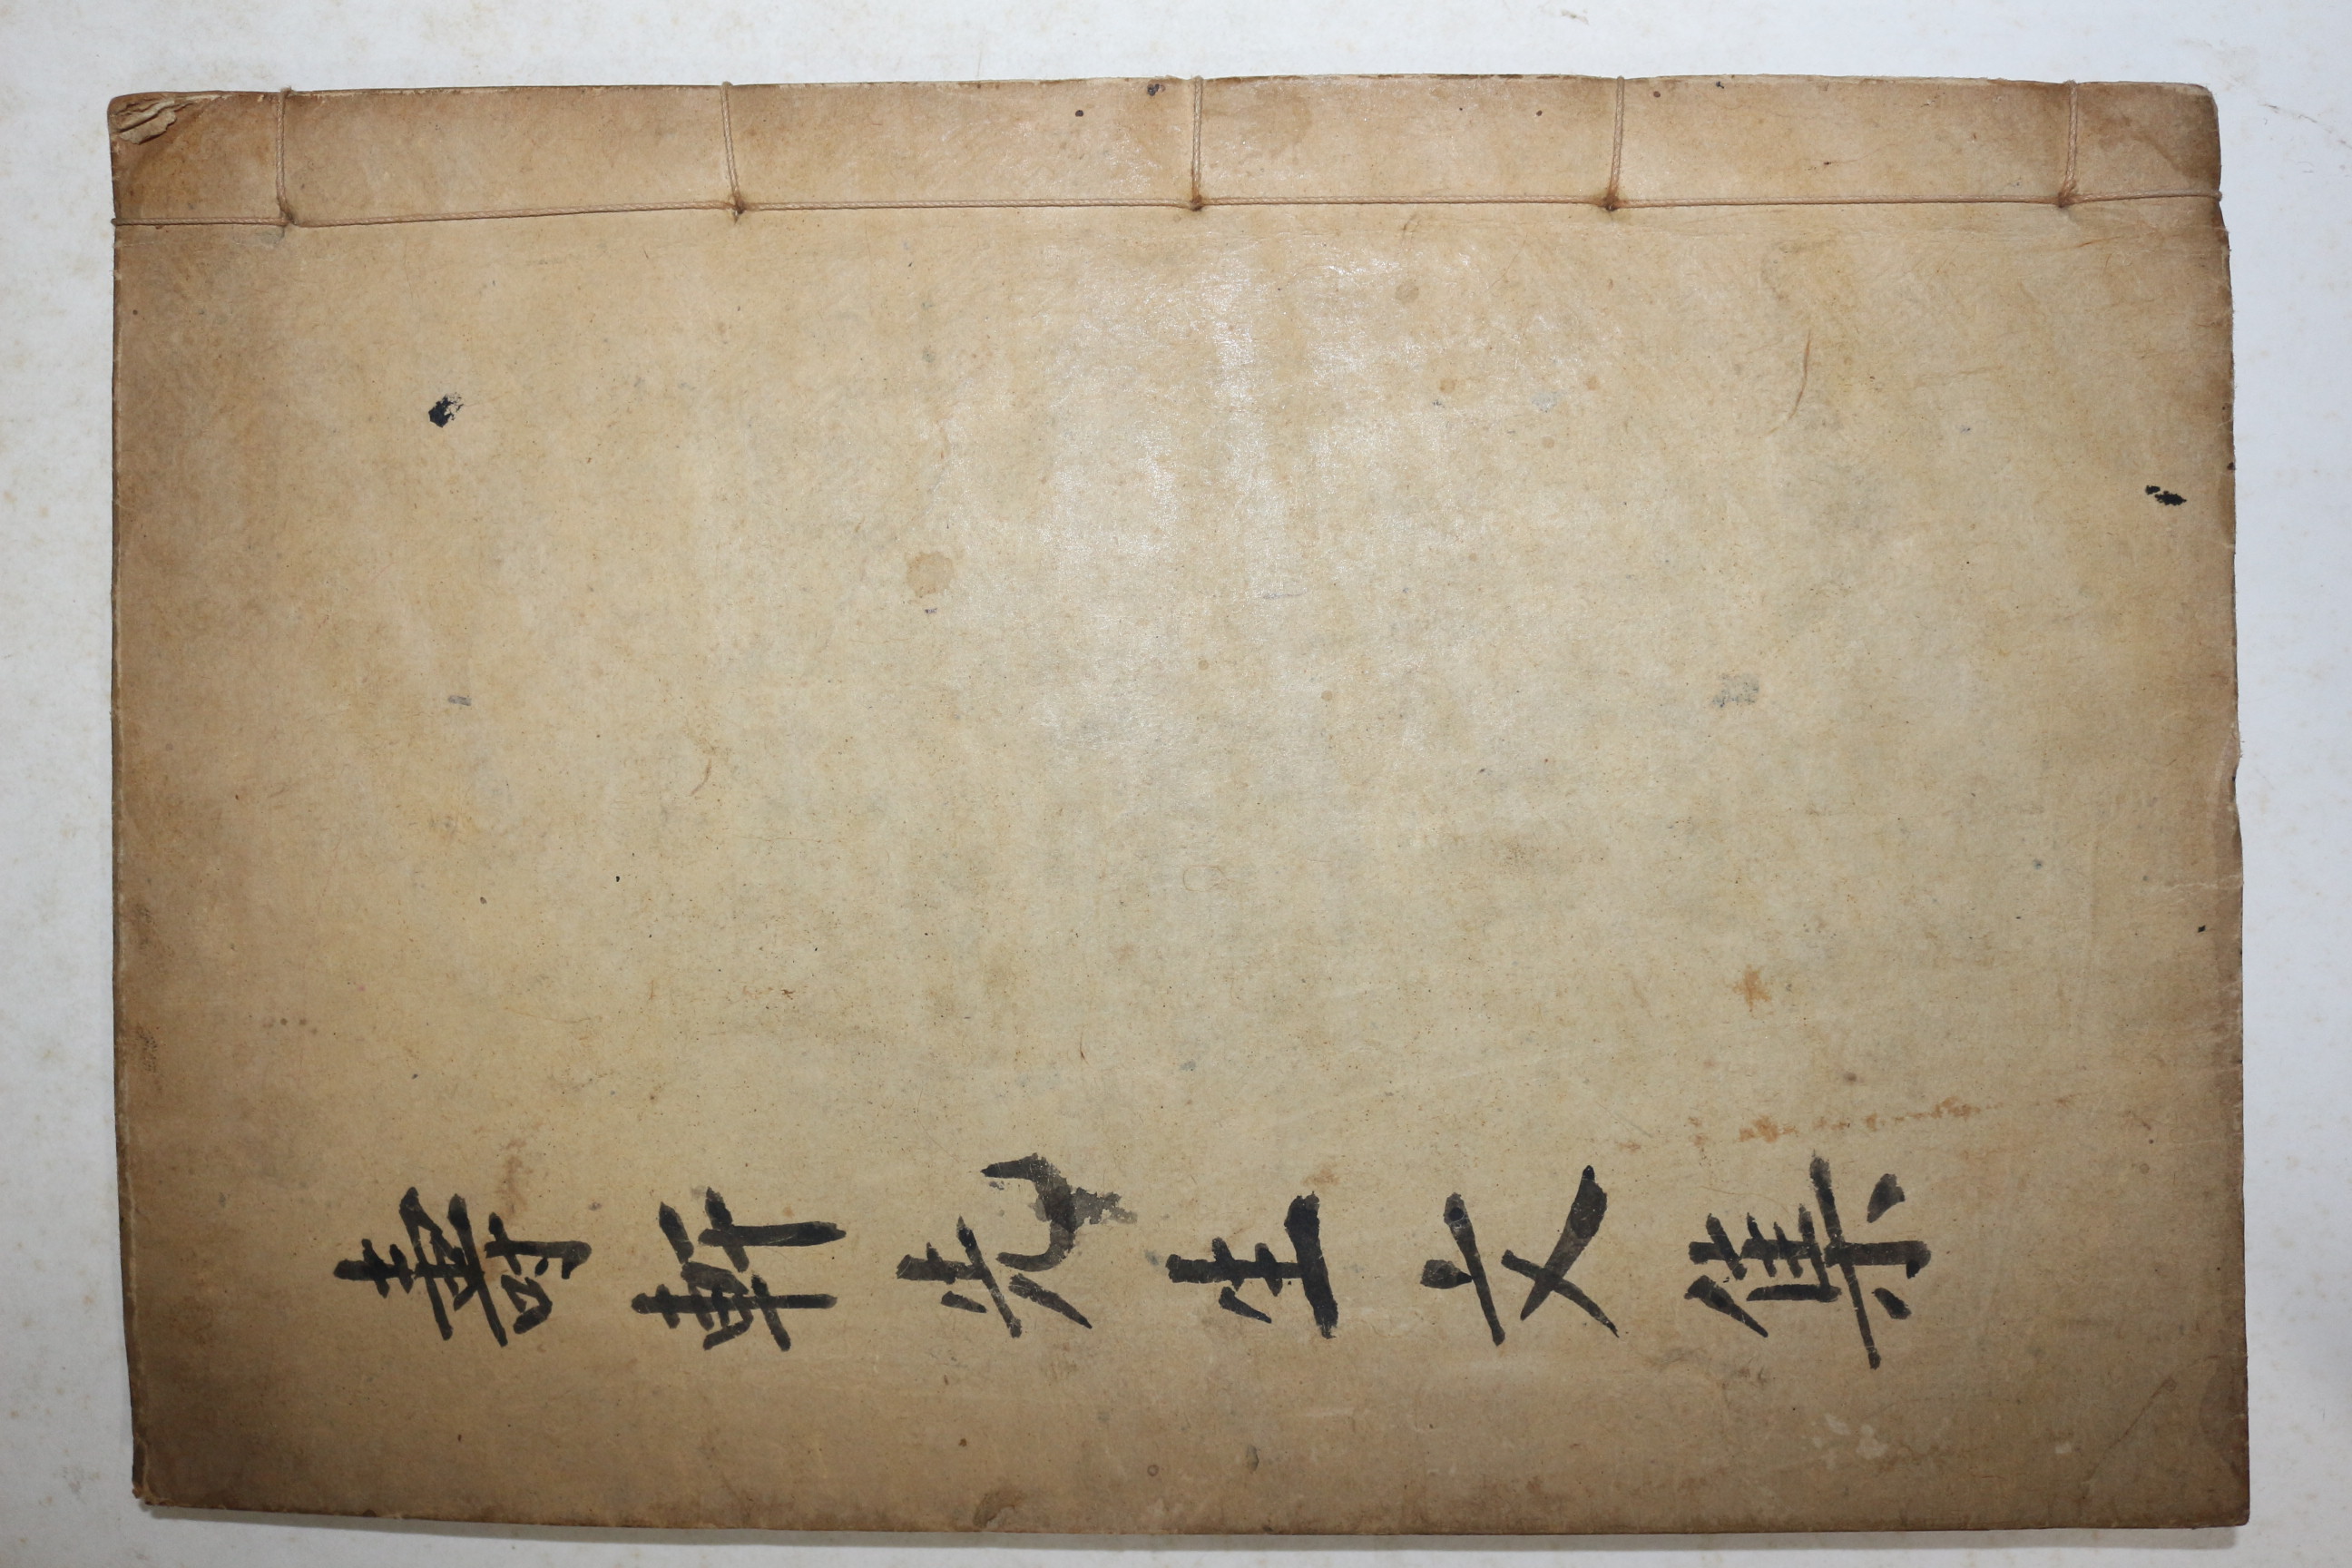 壽軒先生文集